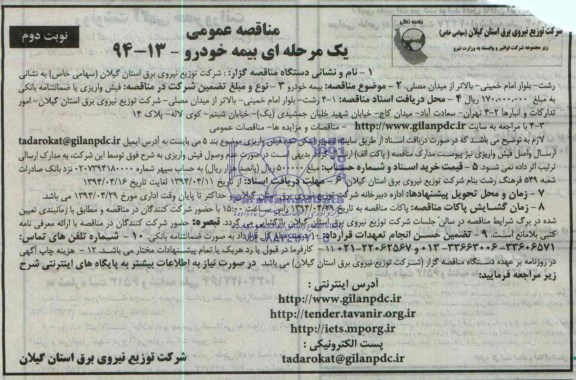 شرکت توزیع نیروی برق استان گیلان (سهامی خاص)
زیر مجموعه شرکت توانیر و وابسته به وزارت نیرو
مناقصه عمومی
یک مرحله ای بیمه خودرو - ۱۳-۹۴
نوبت دوم
۱ - نام و نشانی دستگاه مناقصه گزار: شرکت توزیع نیروی برق استان گیلان (سهامی خاص) به نشانی
رشت- بلوار امام خمینی- بالاتر از میدان مصلی. ۲- موضوع مناقصه: بیمه خودرو ۳- نوع و مبلغ تضمین شرکت در مناقصه: فیش واریزی یا ضمانتنامه بانکی
به مبلغ ۱۷۰،۰۰۰،۰۰۰ ریال ۴- محل دریافت اسناد مناقصه: ۱-۴ رشت- بلوار امام خمینی- بالاتر از میدان مصلی- شرکت توزیع نیروی برق استان گیلان- امور
تدارکات و انبارها ۲-۴ تهران- سعادت آباد- میدان کاج- خیابان شهید خلیل جمشیدی (یک)- خیابان شبنم- کوی لاله- پلاک ۱۴
۳-۴ با مراجعه به سایت http://www.gilanpdc.ir - مناقصات و مزایده ها- مناقصات عمومی
لازم به توضیح می باشد که در صورت دریافت اسناد از طریق سایت فیش واریزی موضوع بند ۵ می بایست به آدرس ایمیل tadarokat@gilanpdc.ir
ارسال و اصل فیش واریزی نیز پیوست مدارک مناقصه (پاکت الف) بدیهی است در صورت عدم وصول فیش واریزی به شرح فوق توسط این شرکت، به مدارک ارسالی
ترتیب اثر داده نمی شود. ۵- قیمت خرید اسناد و شماره حساب: مبلغ ۵۰۰،۰۰۰ ریال (پانصد هزار ریال) به حساب سپهر شماره نزد بانک صادرات
شعبه ۵۴۹ فرهنگ رشت بنام شرکت توزیع نیروی برق استان گیلان ۶- مهلت دریافت اسناد: از تاریخ ۱۳۹۴/۰۴/۱۱ لغایت تاریخ ۱۳۹۴/۰۴/۱۶
۷- زمان و محل تحویل پیشنهادها: اداره دبیرخانه شرکت توزیع نیروی برق استان گیلان حداکثر تا پایان وقت اداری مورخ ۱۳۹۴/۰۴/۲۹ می باشد.
۸- زمان گشایش پاکات مناقصه: پاکات مناقصه به تاریخ ساعت با حضور شرکت کنندگان در مناقصه و مطابق با زمانبندی تعیین
شده در برگ شرایط مناقصه در سالن جلسات شرکت توزیع نیروی برق استان گیلان بازگشایی می گردد. تبصره: حضور شرکت کنندگان در مناقصه با ارائه معرفی نامه
کتبی بلامانع است. ۹- تضمین حسن انجام تعهدات قرارداد: قرارداد به صورت ضمانتنامه بانکی. ۱۰- شماره تلفن های تماس:
۳۳۶۰۶۵۷۱- ۰۱۳-۳۳۶۶۳۰۰۶ و ۰۲۱-۲۲۰۶۲۵۶۷ ۱۱- کارفرما در قبول یا رد هر یک یا تمام پیشنهادات مختار می باشد. ۱۲- هزینه چاپ آگهی
در روزنامه بر عهده دستگاه مناقصه گزار (شرکت توزیع نیروی برق استان گیلان) می باشد. در صورت نیاز به اطلاعات بیشتر به پایگاه های اینترنتی شرح
زیر مراجعه فرمایید:
آدرس اینترنتی :
http://www.gilanpdc.ir
http://tender.tavanir.org.ir
http://iets.mporg.ir
پست الکترونیکی :
tadarokat@gilanpdc.ir
شرکت توزیع نیروی برق استان گیلان